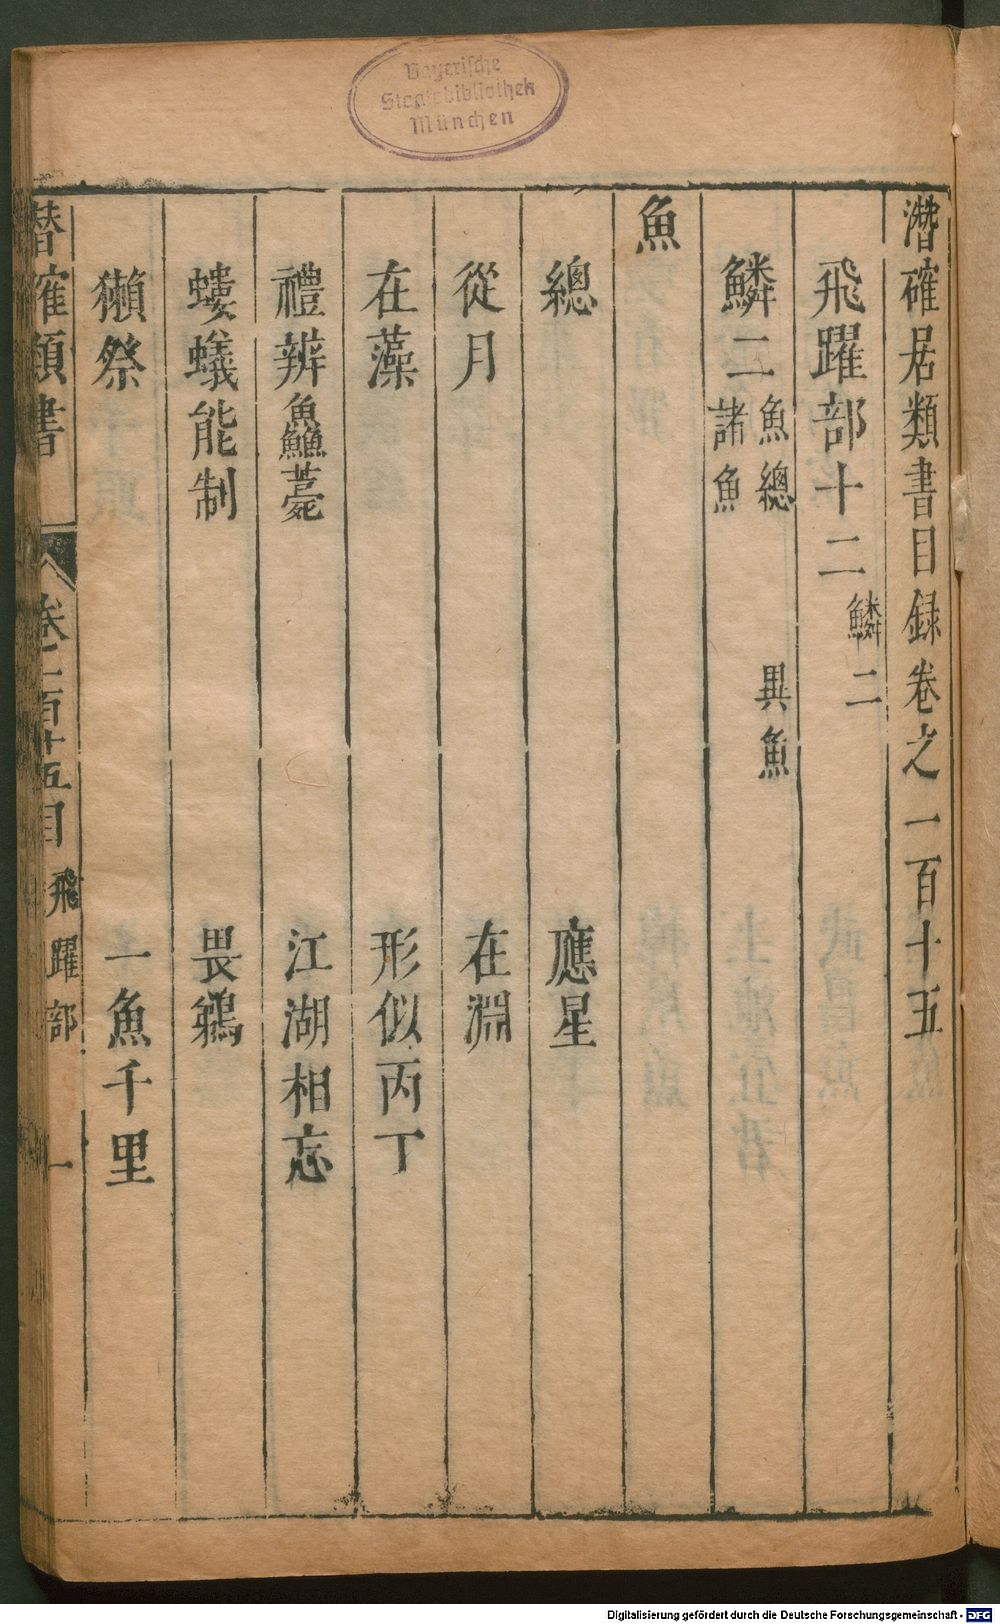 Bayerische
Staatsbibliothek
München
潛確居類書目録卷之一百十五
飛躍部十二 鱗二
鱗二 魚總 異魚
諸魚
魚
總 應星
從月 在淵
在藻 形似丙丁
禮辨魚鱻薧 江湖相忘
螻蟻能制 畏鵜
獺祭 一魚千里
潛確類書 卷一百十五目 飛躍部 一
Digitalisierung gefördert durch die Deutsche Forschungsgemeinschaft - DFG